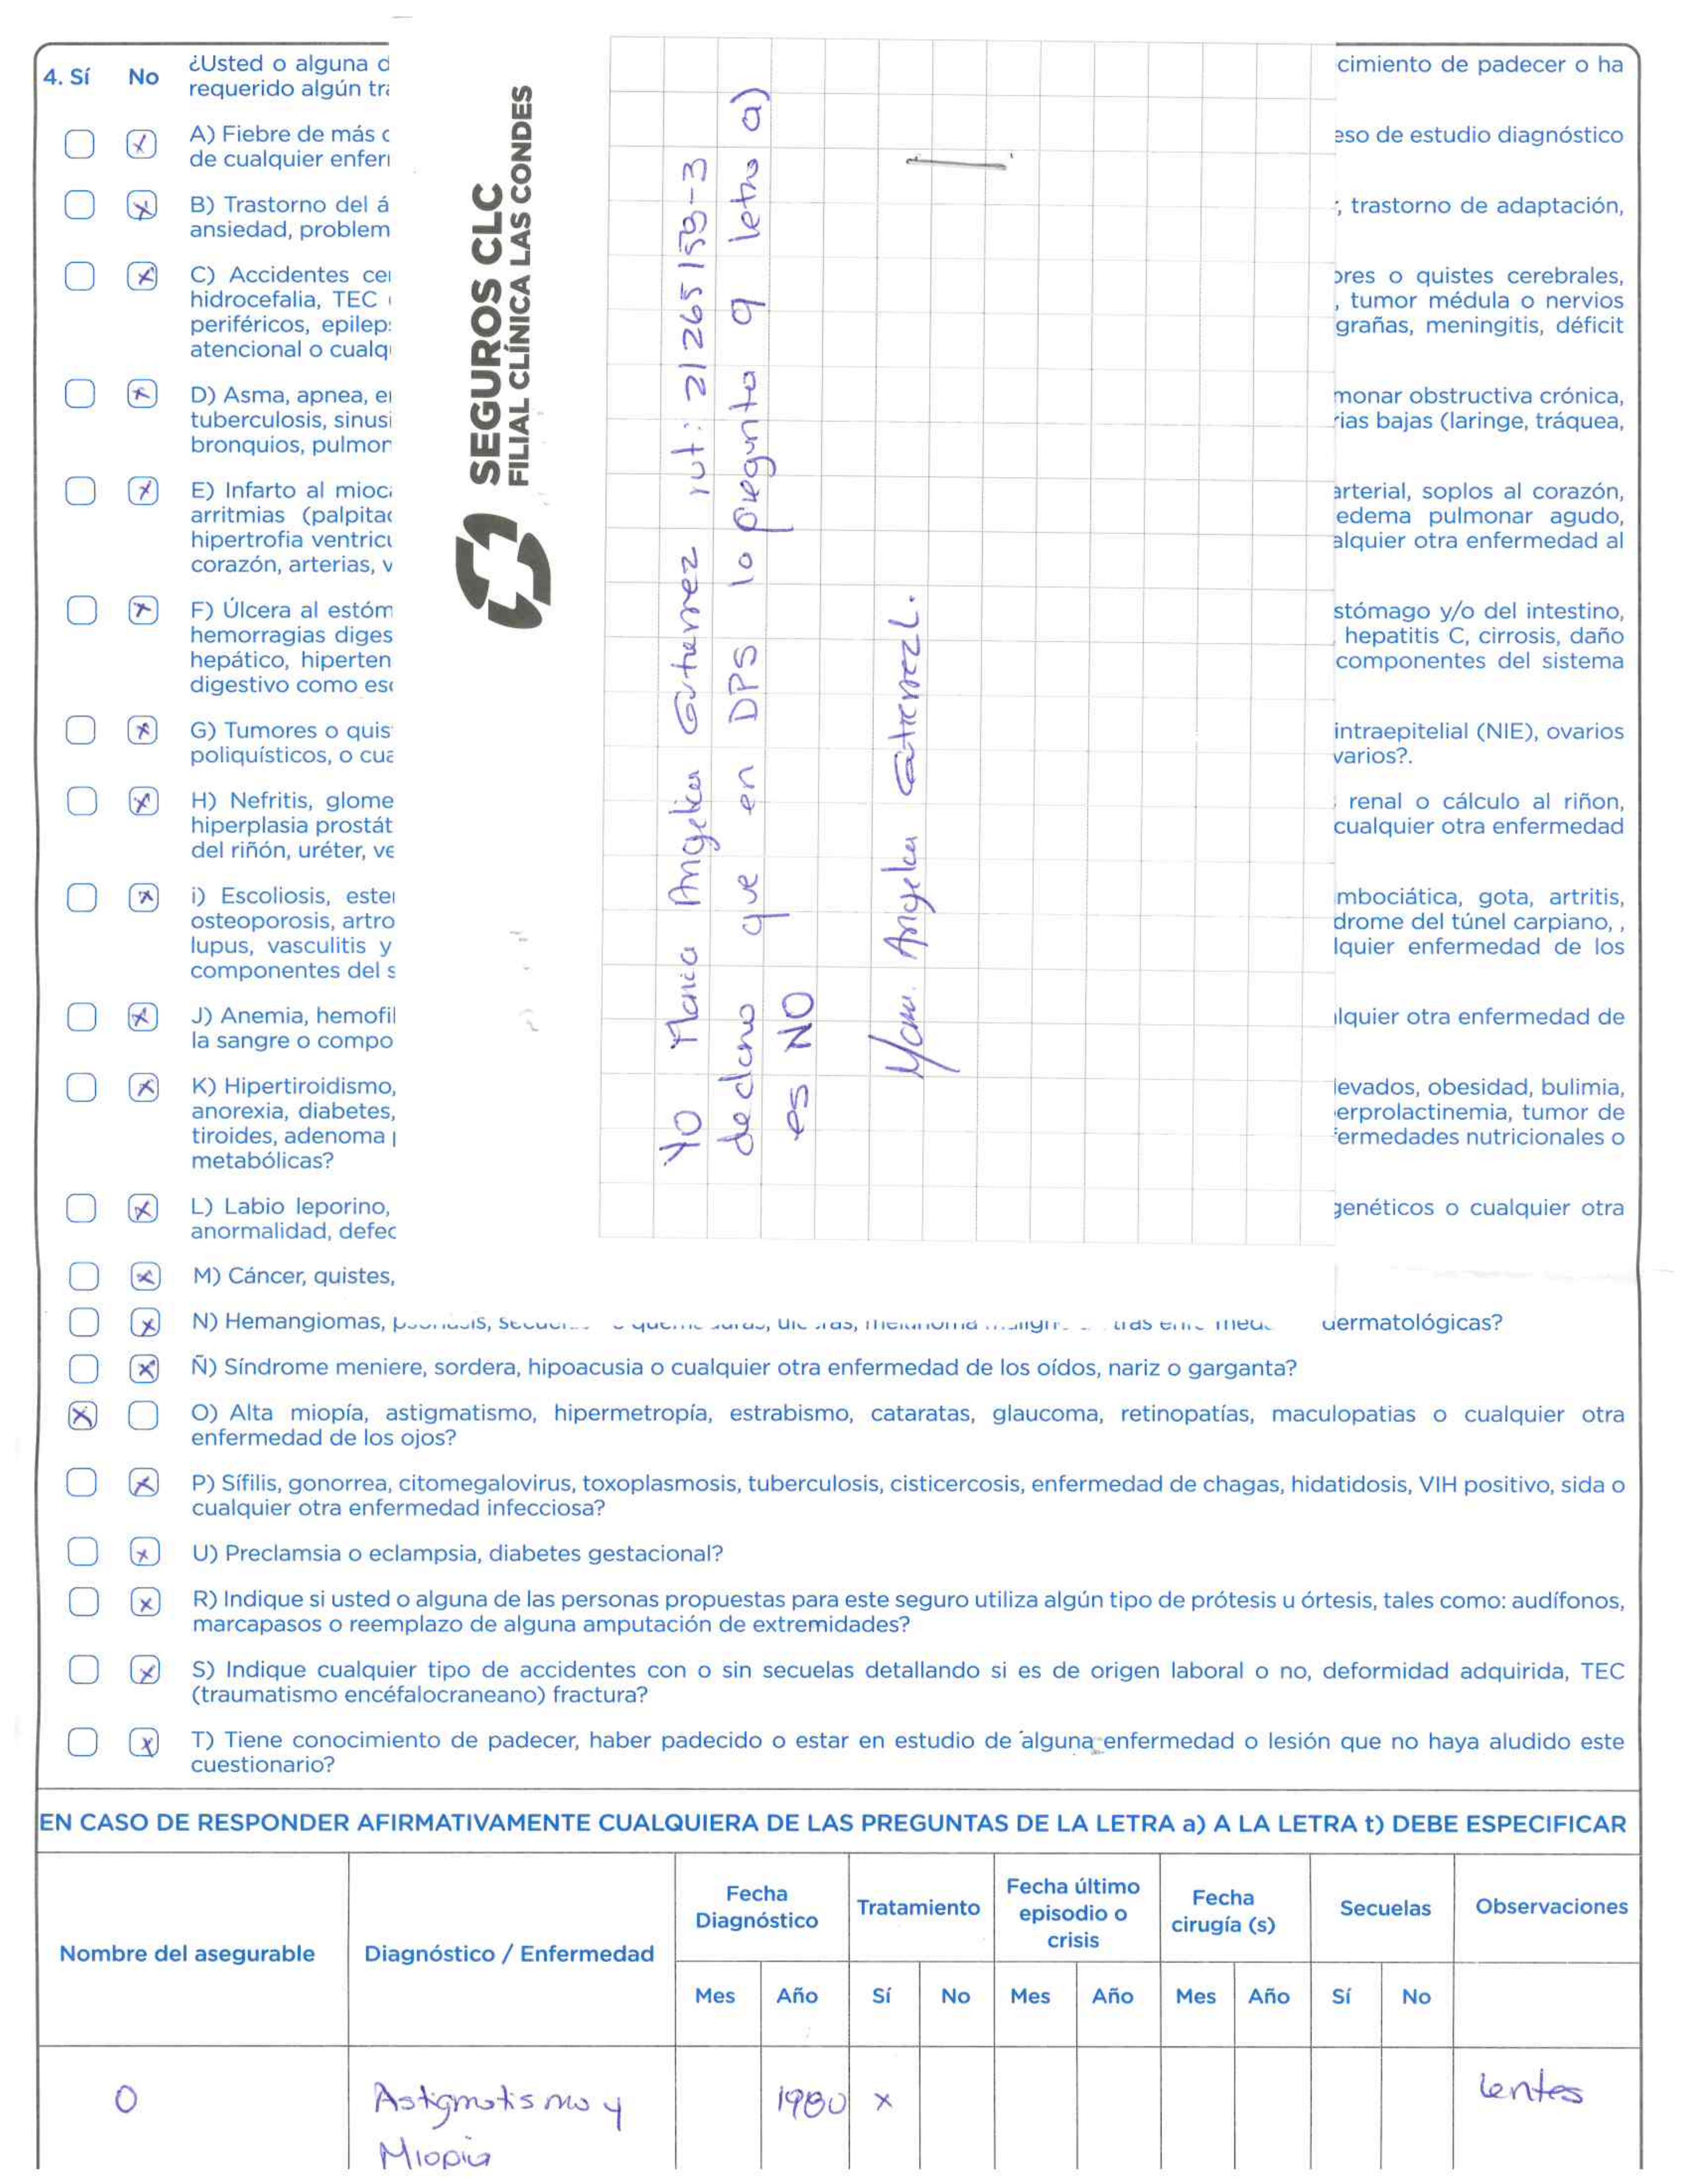 4. Sí No ¿Usted o alguna d cimiento de padecer o ha
requerido algún tra
A) Fiebre de más eso de estudio diagnóstico
de cualquier enfer
B) Trastorno del á , trastorno de adaptación,
ansiedad, problem
C) Accidentes ce ores o quistes cerebrales,
hidrocefalia, TEC , tumor médula o nervios
periféricos, epilep grañas, meningitis, déficit
atencional o cualq
D) Asma, apnea, e monar obstructiva crónica,
tuberculosis, sinusi rias bajas (laringe, tráquea,
bronquios, pulmon
E) Infarto al mioc arterial, soplos al corazón,
arritmias (palpitac edema pulmonar agudo,
hipertrofia ventricu alquier otra enfermedad al
corazón, arterias, v
F) Úlcera al estóm stómago y/o del intestino,
hemorragias diges hepatitis C, cirrosis, daño
hepático, hiperten componentes del sistema
digestivo como eso
G) Tumores o quis intraepitelial (NIE), ovarios
poliquísticos, o cua varios?.
H) Nefritis, glome renal o cálculo al riñon,
hiperplasia prostát cualquier otra enfermedad
del riñón, uréter, ve
i) Escoliosis, este mbociática, gota, artritis,
osteoporosis, artro drome del túnel carpiano, ,
lupus, vasculitis y lquier enfermedad de los
componentes del s
J) Anemia, hemofil lquier otra enfermedad de
la sangre o compo
K) Hipertiroidismo, levados, obesidad, bulimia,
anorexia, diabetes, erprolactinemia, tumor de
tiroides, adenoma fermedades nutricionales o
metabólicas?
L) Labio leporino, genéticos o cualquier otra
anormalidad, defec
M) Cáncer, quistes,
N) Hemangiomas, dermatológicas?
Ñ) Síndrome meniere, sordera, hipoacusia o cualquier otra enfermedad de los oídos, nariz o garganta?
O) Alta miopía, astigmatismo, hipermetropía, estrabismo, cataratas, glaucoma, retinopatías, maculopatias o cualquier otra
enfermedad de los ojos?
P) Sífilis, gonorrea, citomegalovirus, toxoplasmosis, tuberculosis, cisticercosis, enfermedad de chagas, hidatidosis, VIH positivo, sida o
cualquier otra enfermedad infecciosa?
U) Preclamsia o eclampsia, diabetes gestacional?
R) Indique si usted o alguna de las personas propuestas para este seguro utiliza algún tipo de prótesis u órtesis, tales como: audífonos,
marcapasos o reemplazo de alguna amputación de extremidades?
S) Indique cualquier tipo de accidentes con o sin secuelas detallando si es de origen laboral o no, deformidad adquirida, TEC
(traumatismo encéfalocraneano) fractura?
T) Tiene conocimiento de padecer, haber padecido o estar en estudio de alguna enfermedad o lesión que no haya aludido este
cuestionario?
SEGUROS CLC
FILIAL CLÍNICA LAS CONDES
Yo Maria Angelica Gutierrez rut: 21265159-3
declaro que en DPS la pregunta 9 letra a)
es NO
Mar. Angelica Gutierrez L.
EN CASO DE RESPONDER AFIRMATIVAMENTE CUALQUIERA DE LAS PREGUNTAS DE LA LETRA a) A LA LETRA t) DEBE ESPECIFICAR
Nombre del asegurable Diagnóstico / Enfermedad Fecha Diagnóstico Tratamiento Fecha último episodio o crisis Fecha cirugía (s) Secuelas Observaciones
Mes Año Sí No Mes Año Mes Año Sí No
O Astigmatismo y 1980 x Lentes
Miopia